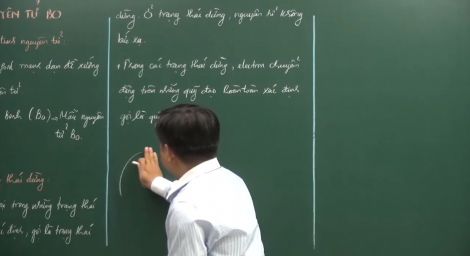 YÊN TỬ BO
tính nguyên tử
định
hành (Bo) → Mẫu nguyên
tử Bo.
thái dừng.
trong những trạng thái
định, gọi là trạng thái
dừng. Ở trạng thái dừng, nguyên tử không
bức xạ.
+ Trong các trạng thái dừng, electron chuyển
động trên những quỹ đạo hoàn toàn xác định
gọi là